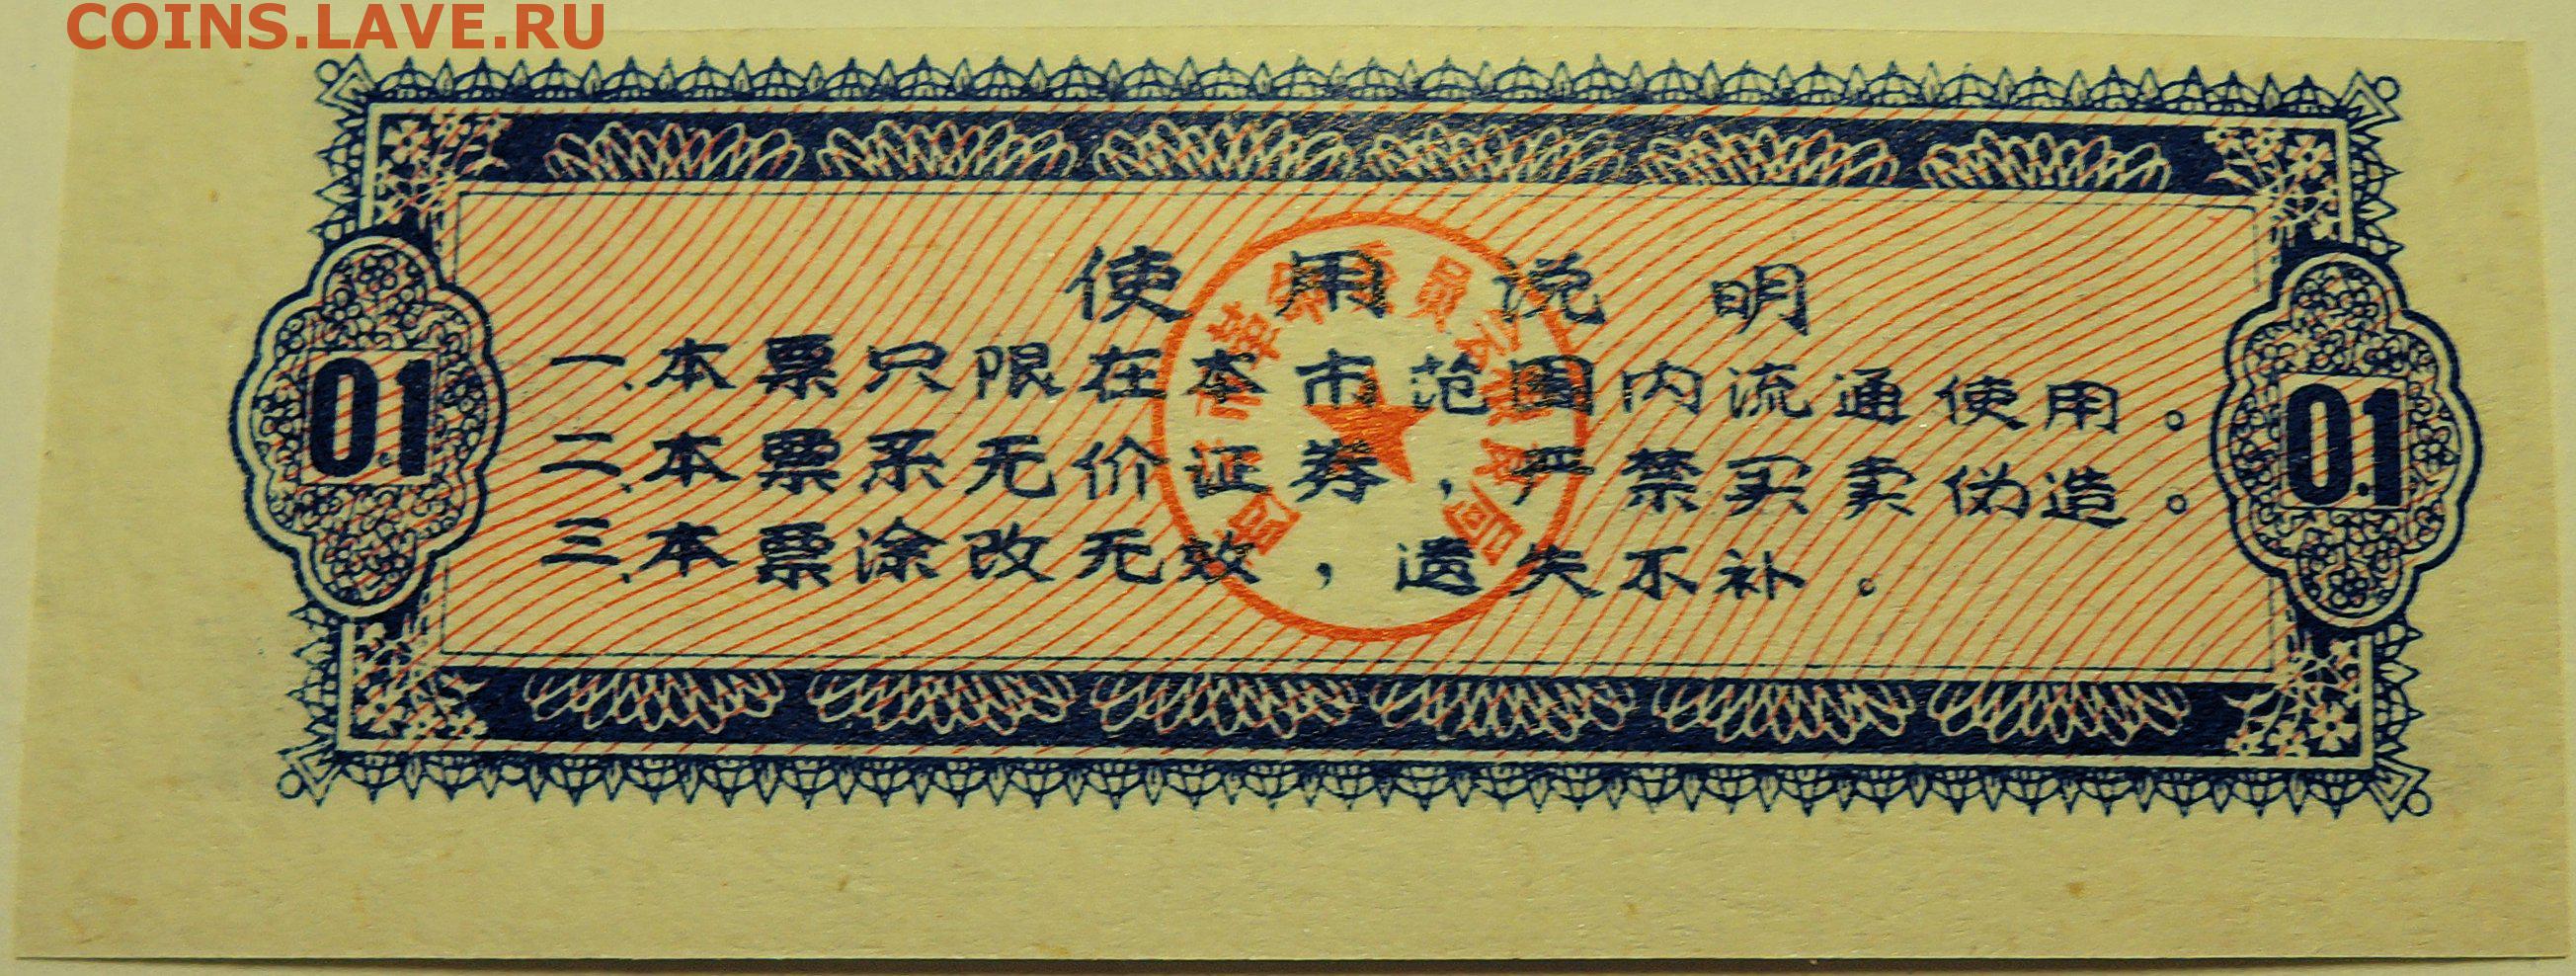 COINS.LAVE.RU
使用说明
一.本票只限在本市范围内流通使用。
二.本票系无价证券，严禁买卖伪造。
三.本票涂改无效，遗失不补。
0.1
0.1